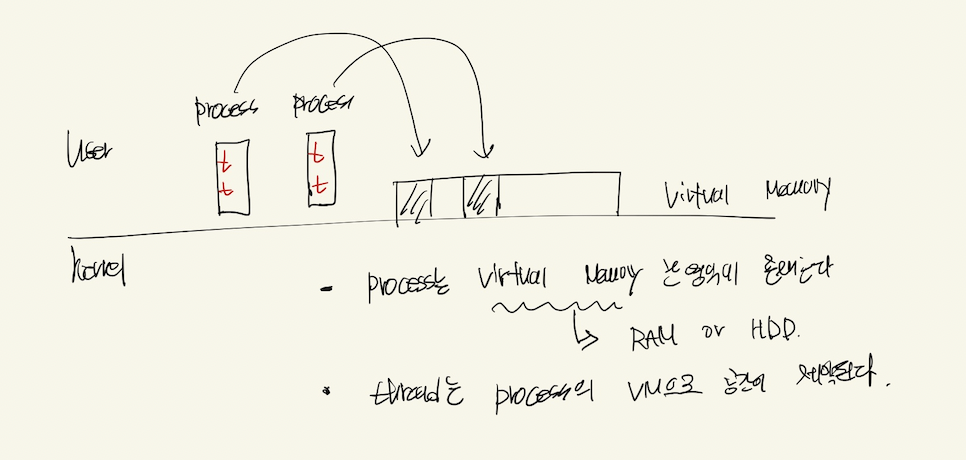 process process
User
t t
t t
Virtual Memory
kernel
- process는 Virtual Memory 논영역이 존재한다
RAM or HDD.
• thread는 process의 VM으로 공간이 제약된다.